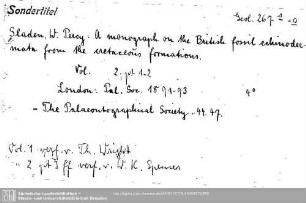 Sondertitel
Geol. 267
Sladen, W. Percy. A monograph on the British fossil echinoder-
mata from the cretaceous formations.
Vol. 2. pt. 1-2
London: Pal. Soc. 1891-93 4°
= The Palaeontographical Society. 44. 47.
Vol. 1 verf. v. Th. Wright
" 2 pt 3 ff verf. v. W. K. Spencer
Sächsische Landesbibliothek -
Staats- und Universitätsbibliothek Dresden